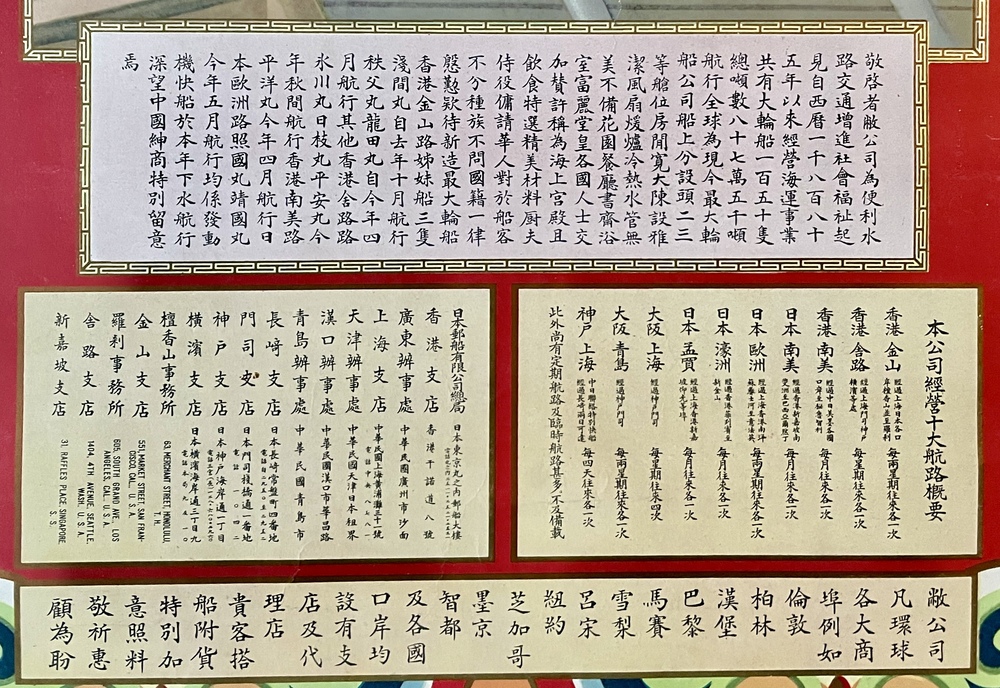 敬啓者敝公司為便利水
路交通增進社會福祉起
見自西曆一千八百八十
五年以來經營海運事業
共有大輪船一百五十隻
總噸數八十七萬五千噸
航行全球為現今最大輪
船公司船上分設頭二三
等艙位房間寬大陳設雅
潔風扇煖爐冷熱水管無
美不備花園餐廳書齋浴
室富麗堂皇各國人士交
加賛許稱為海上宮殿且
飲食特選精美材料厨夫
侍役傭請華人對於船客
不分種族不問國籍一律
慇懃欵待新造最大輪船
香港金山路姊妹船三隻
淺間丸自去年十月航行
秩父丸龍田丸自今年四
月航行其他香港舎路路
氷川丸日枝丸平安丸今
年秋間航行香港南美路
平洋丸今年四月航行日
本歐洲路照國丸靖國丸
今年五月航行均係發動
機快船於本年下水航行
深望中國紳商特別留意
焉
本公司經營十大航路概要
香港 金山 經過上海日本各口岸檀香山直至羅利 每兩星期往來各一次
香港 舎路 經過上海門司神戶橫濱等處 每兩星期往來各一次
香港 南美 每月往來各一次
日本 南美 每月往來各一次
日本 歐洲 每兩星期往來各一次
日本 濠洲 每月往來各一次
日本 孟買 每月往來各一次
大阪 上海 經過神戶門司 每星期往來四次
大阪 青島 經過神戶門司 每兩星期往來各一次
神戶 上海 中日聯絡特別快船經過長崎兩日可達 每四天往來各一次
此外尚有定期航路及臨時航路甚多不及備載
日本郵船有限公司總局 日本東京丸之內郵船大樓
香港支店 香港干諾道八號
廣東辦事處 中華民國廣州市沙面
上海支店 中華民國上海黃浦灘三十一號
天津辦事處 中華民國天津日本租界
漢口辦事處 中華民國漢口市華昌路
青島辦事處 中華民國青島市
長崎支店 日本長崎常盤町四番地
門司支店 日本門司棧橋通一番地
神戶支店 日本神戶海岸通一丁目
橫濱支店 日本橫濱海岸通三丁目九
檀香山事務所 63 MERCHANT STREET, HONOLULU, T. H.
金山支店 551, MARKET STREET, SAN FRANCISCO, CAL., U. S. A.
羅利事務所 605, SOUTH GRAND AVE., LOS ANGELES, CAL., U. S. A.
舎路支店 1404, 4TH AVENUE, SEATTLE, WASH., U. S. A.
新嘉坡支店 31, RAFFLES PLACE, SINGAPORE S. S.
敝公司
凡環球
各大商
埠例如
倫敦
柏林
漢堡
巴黎
馬賽
雪梨
呂宋
紐約
芝加哥
墨京
智都
及各國
口岸均
設有支
店及代
理店
貴客搭
船附貨
特別加
意照料
敬祈惠
顧為盼